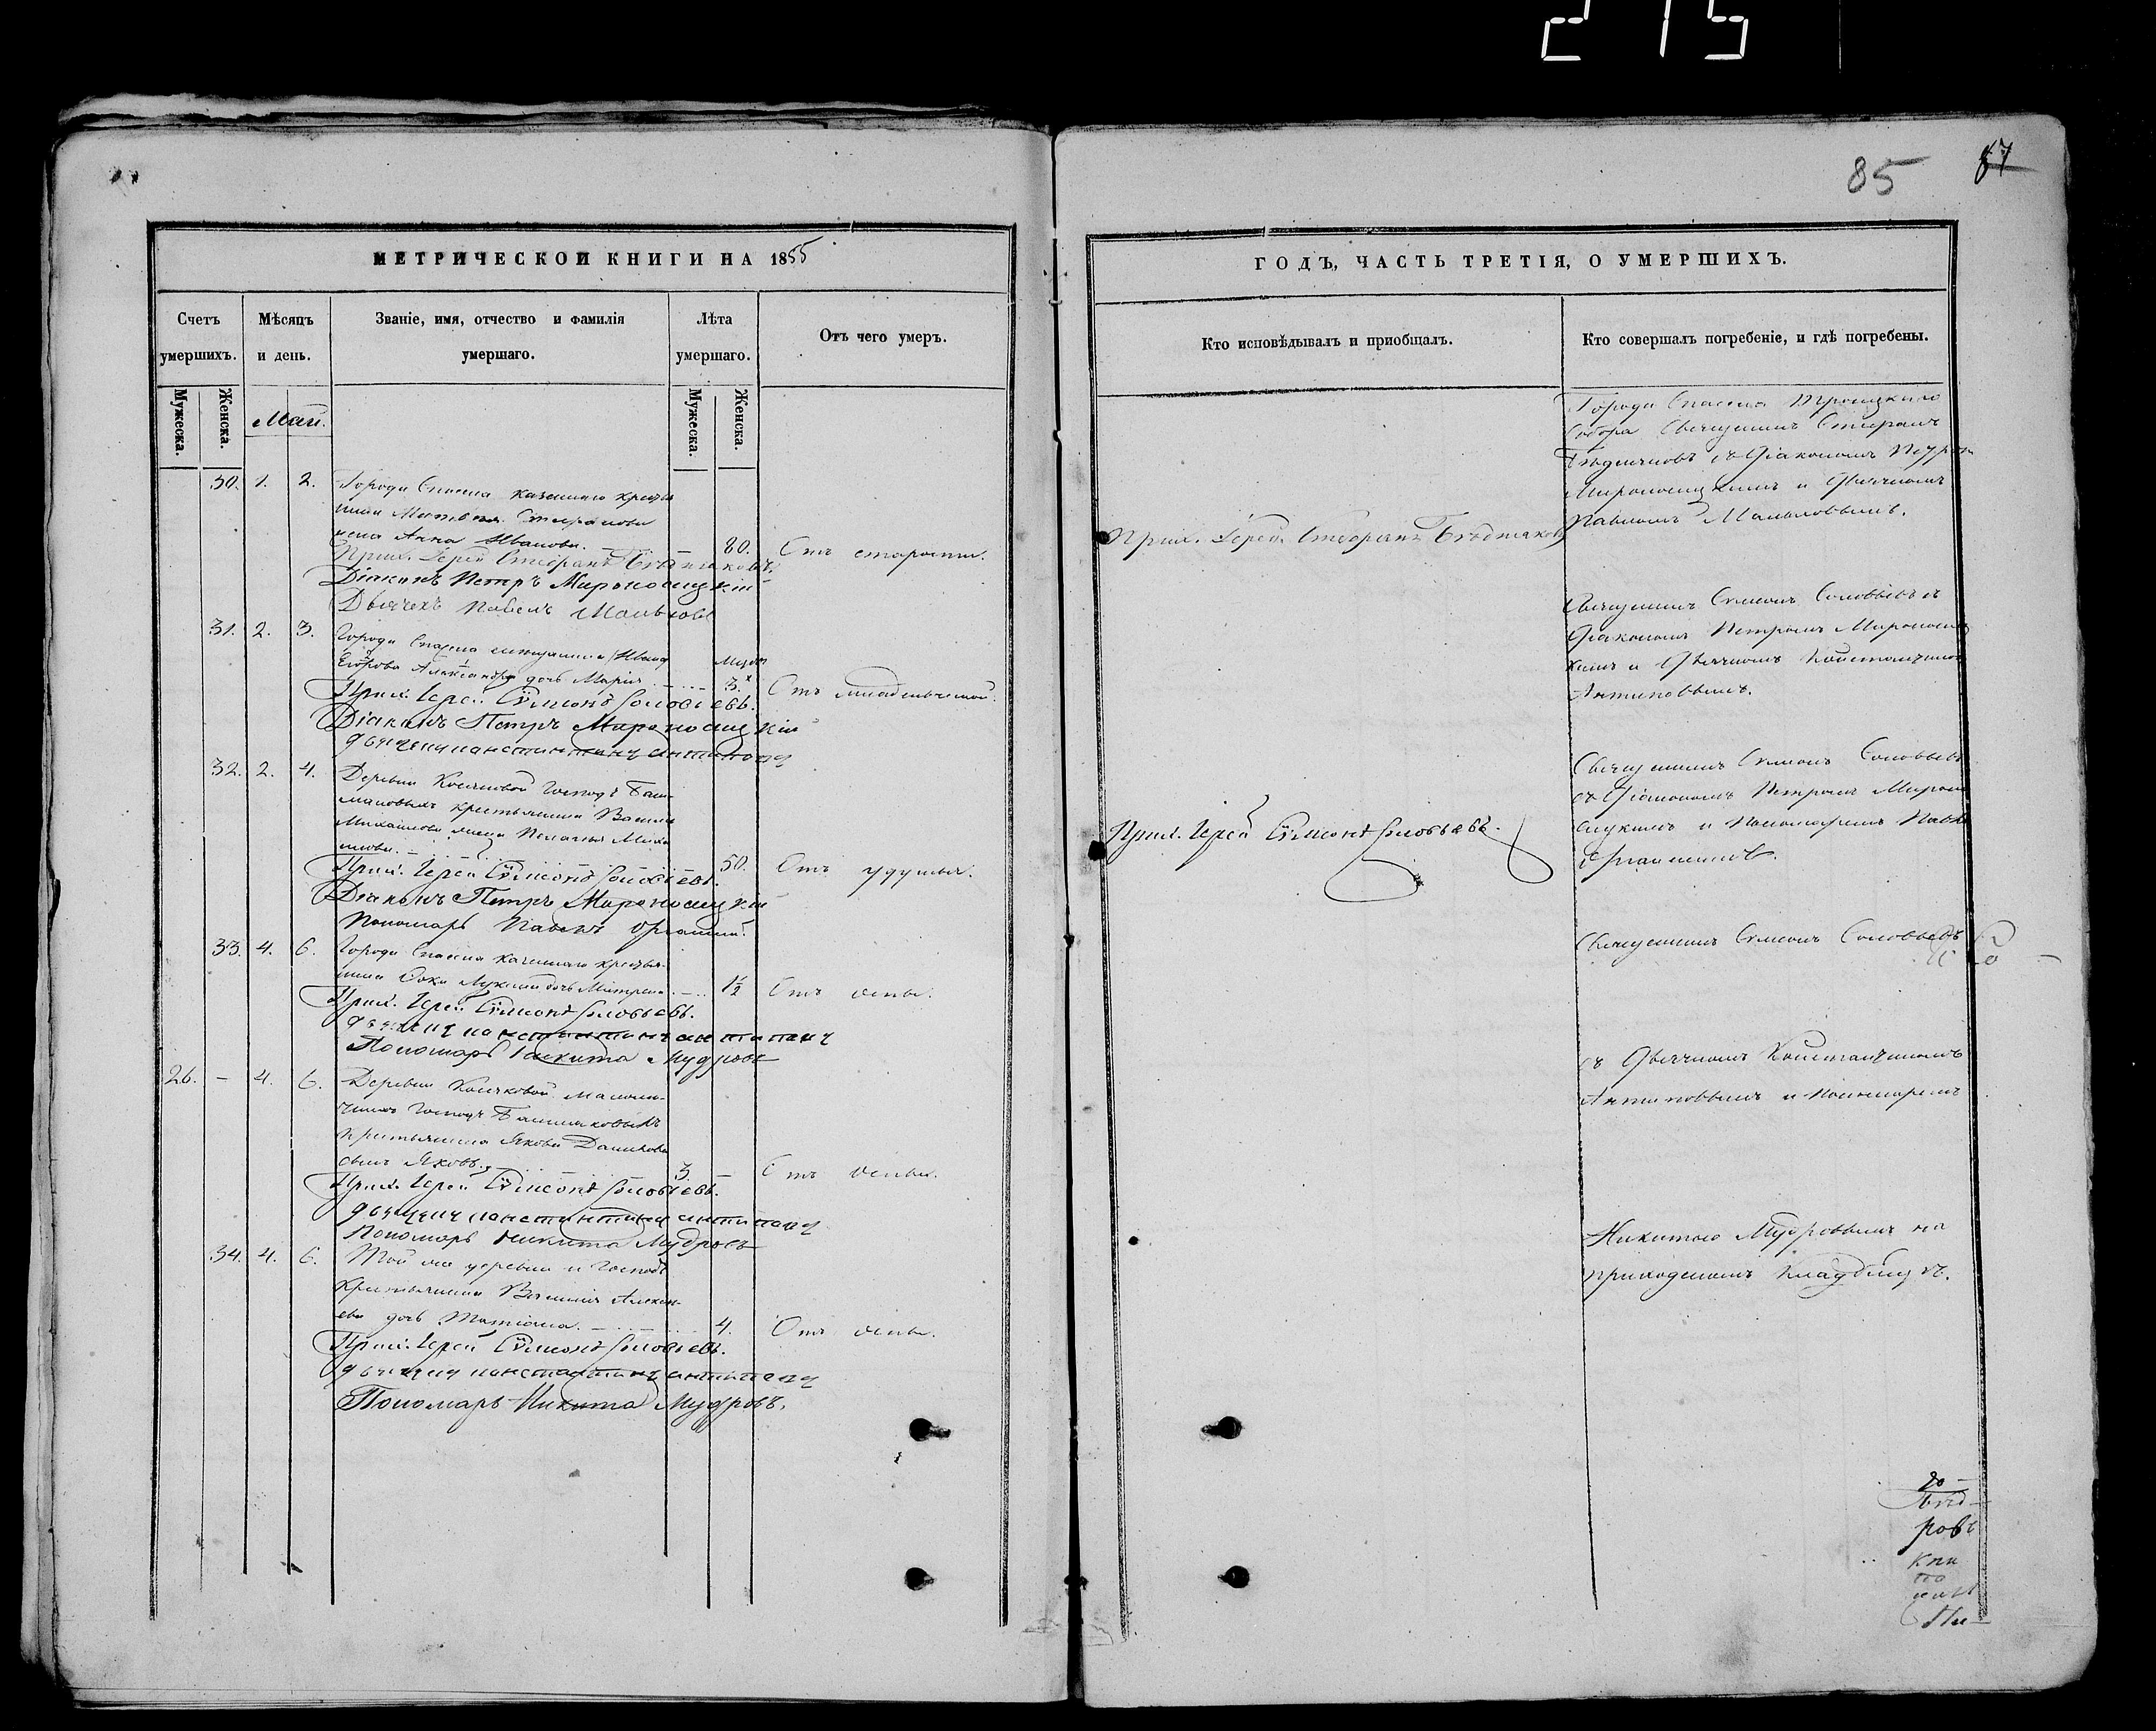 275
85
87
МЕТРИЧЕСКОЙ КНИГИ НА 1855
Счетъ умершихъ.
Мѣсяцъ и день.
Званіе, имя, отчество и фамилія умершаго.
Лѣта умершаго.
Отъ чего умеръ.
Мужеска.
Женска.
Май.
Мужеска.
Женска.
30. 1. 2. Города Спасска казеннаго крестья
нина Матвея Стефанова
жена Анна Иванова. 80. Отъ старости.
Прих. Іерей Стефанъ Бѣдняковъ.
Діаконъ Петръ Мироносицкій
Дьячекъ Павелъ
31. 2. 3. Города Спасска
Егорова Александра дочь Марія 3. Отъ младенческой.
Прих. Іерей Сѵмеонъ Соловьевъ.
Діаконъ Петръ Мироносицкій
дьячекъ константинъ антиповъ
32. 2. 4. Деревни Косяковой Господъ Баш-
маковыхъ крестьянина Васил
Михайлова жена Пелагея Миха
лова. 50. Отъ удушья.
Прих. Іерей Сѵмеонъ Соловьевъ.
Діаконъ Петръ Мироносицкій
Пономарь Павелъ
33. 4. 6. Города Спасска казеннаго крестья-
нина дочь Матрена 1½ Отъ оспы.
Прих. Іерей Сѵмеонъ Соловьевъ.
дьячекъ константинъ антиповъ
Пономарь Никита Мудровъ
26. - 4. 6. Деревни Косяковой
Господъ Башмаковыхъ
крестьянина Якова Данилова
сынъ Яковъ. 3. Отъ оспы.
Прих. Іерей Сѵмеонъ Соловьевъ.
дьячекъ константинъ антиповъ
Пономарь Никита Мудровъ
34. 4. 6. Той же деревни и Господъ
крестьянина Василія Алексѣ-
ева дочь Татіана. 4. Отъ оспы.
Прих. Іерей Сѵмеонъ Соловьевъ.
дьячекъ константинъ антиповъ
Пономарь Никита Мудровъ.
ГОДЪ, ЧАСТЬ ТРЕТІЯ, О УМЕРШИХЪ.
Кто исповѣдывалъ и пріобщалъ.
Кто совершалъ погребеніе, и гдѣ погребены.
Прих. Іерей Стефанъ Бѣдняковъ
Прих. Іерей Сѵмеонъ Соловьевъ.
Города Спасска Троицкаго
Собора Священникъ Стефанъ
Бѣдняковъ съ Діакономъ Петром
Мироносицкимъ и Дьячкомъ
Павломъ
Священникъ Симеонъ Соловьевъ съ
Діакономъ Петромъ Мироносиц
кимъ и Дьячкомъ Константином
Антиповымъ.
Священникъ Симеонъ Соловьевъ
съ Діакономъ Петромъ Мироно
сицкимъ и Пономаремъ Павло
Священникъ Симеонъ Соловьевъ
съ Дьячкомъ Константиномъ
Антиповымъ и Пономаремъ
Никитою Мудровымъ на
приходскомъ кладбищѣ.